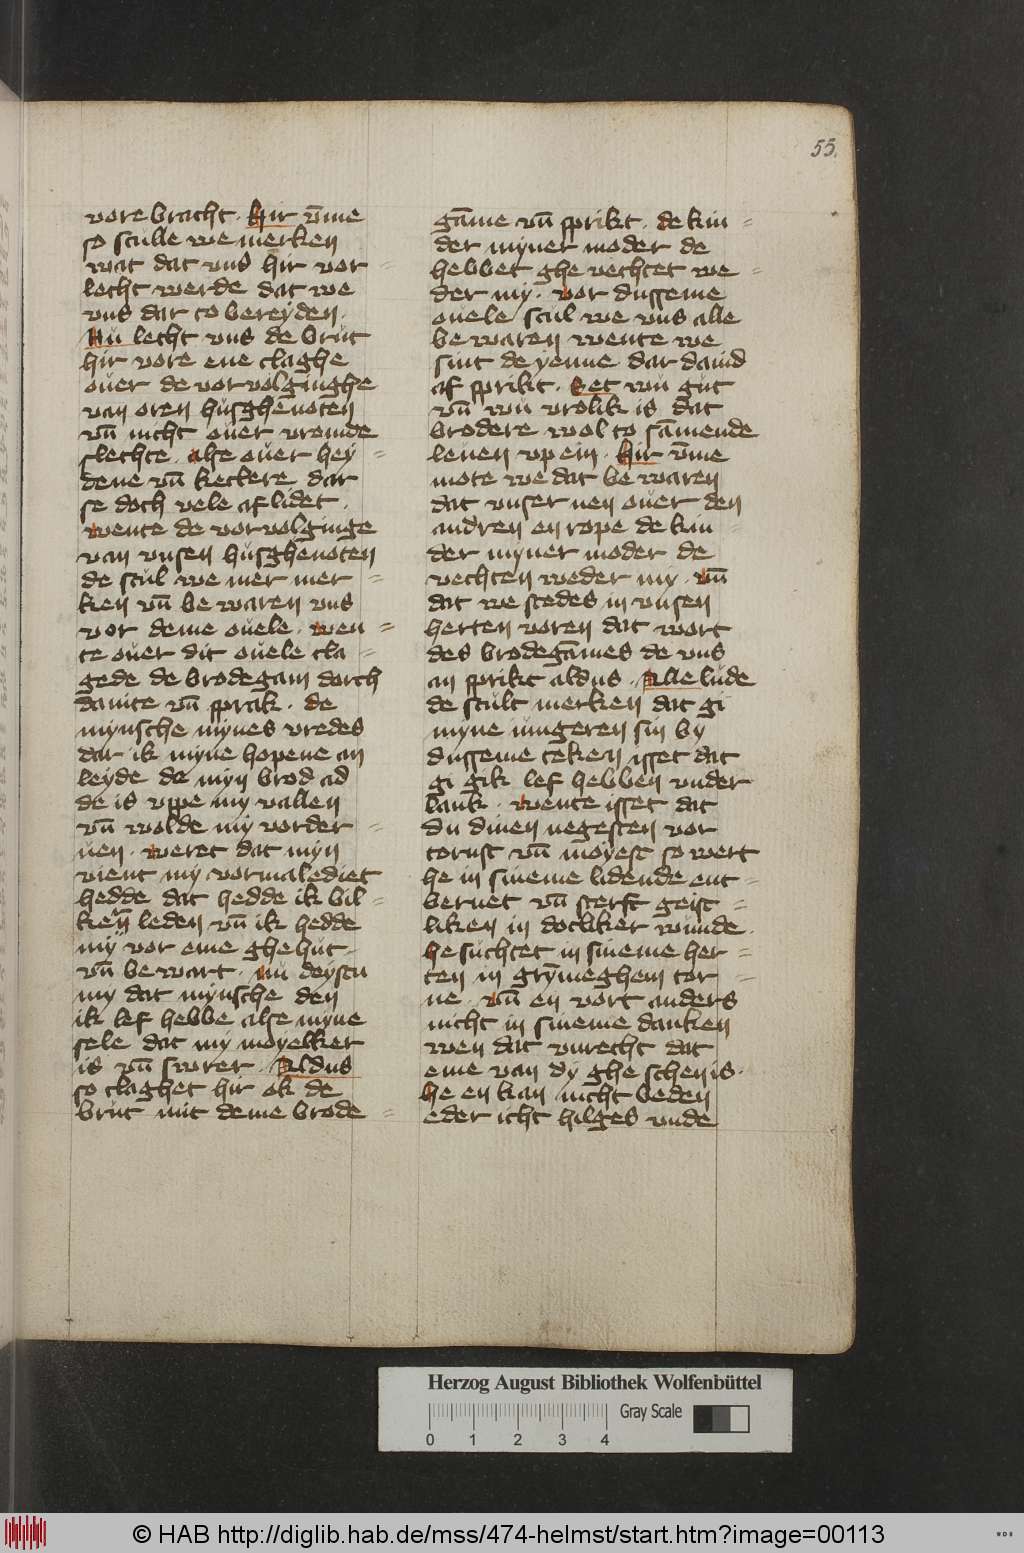 55.
vore bracht · Hir v̄me
so scülle we merken
wat dat vns hir vor=
lecht werde dat we
vns dar to bereyden ·
Nü lecht vns de brüt
hir vore ene claghe
ouer de vorvolginghe
van oren hüsghenoten
vn̄ nicht ouer vromde
slechte · alze ouer hey=
dene vn̄ keckere dar
se doch vele af lidet ·
wente de vorvolginge
van vnsen hüsghenoten
de scül we mer mer=
ken vn̄ be waren vns
vor deme ouele · wen=
te ouer dit ouele cla=
gede de brodegam dorch
dauite vn̄ sprak · de
mynsche mynes vredes
dar ik myne hopene an
leyde de myn brod ad
de is vppe my vallen
vn̄ wolde my vorder=
uen · weret dat myn
vient my vormalediet
hedde dat hedde ik bil=
ken leden vn̄ ik hedde
my vor eme ghehüt
vn̄ be wart · nü deystu
my dat mynsche den
ik lef hebbe alse myne
sele dat my moyelker
is vn̄ swerer · Aldus
so claghet hir ok de
brüt mit deme brode=
gāme vn̄ sprikt · de kin=
der myner moder de
hebbet ghe vechtet we=
der my · vor dusseme
ouele scül we vns alle
be waren wente we
sint de yenne dar dauid
af sprikt · Set wü güt
vn̄ wü vrolik is dat
brodere wol to sāmende
leuen vp ein · Hir v̄me
mote we dat be waren
dat vnser nen ouer den
andren en rope de kin=
der myner moder de
vechten weder my · vn̄
dat we stedes in vnsen
herten voren dat wort
des brodegāmes de vns
an sprikt aldus · Alle lüde
de scült merken dat gi
myne iüngeren sin by
dusseme teken isset dat
gi gik lef hebben vnder
lank · wente isset dat
du dinen negesten vor
tornst vn̄ moyest so wert
he in sineme lidende ent=
bernet vn̄ sterft geist=
liken in dotliker wunde ·
he süchtet in sineme her=
ten in grȳmeghem tor=
ne · vn̄ en vort anders
nicht in sineme danken
wen dat vnrecht dat
eme van dy ghe schen is ·
he en kan nicht beden
eder icht hilges vnde
Herzog August Bibliothek Wolfenbüttel
Gray Scale
0 1 2 3 4
© HAB http://diglib.hab.de/mss/474-helmst/start.htm?image=00113